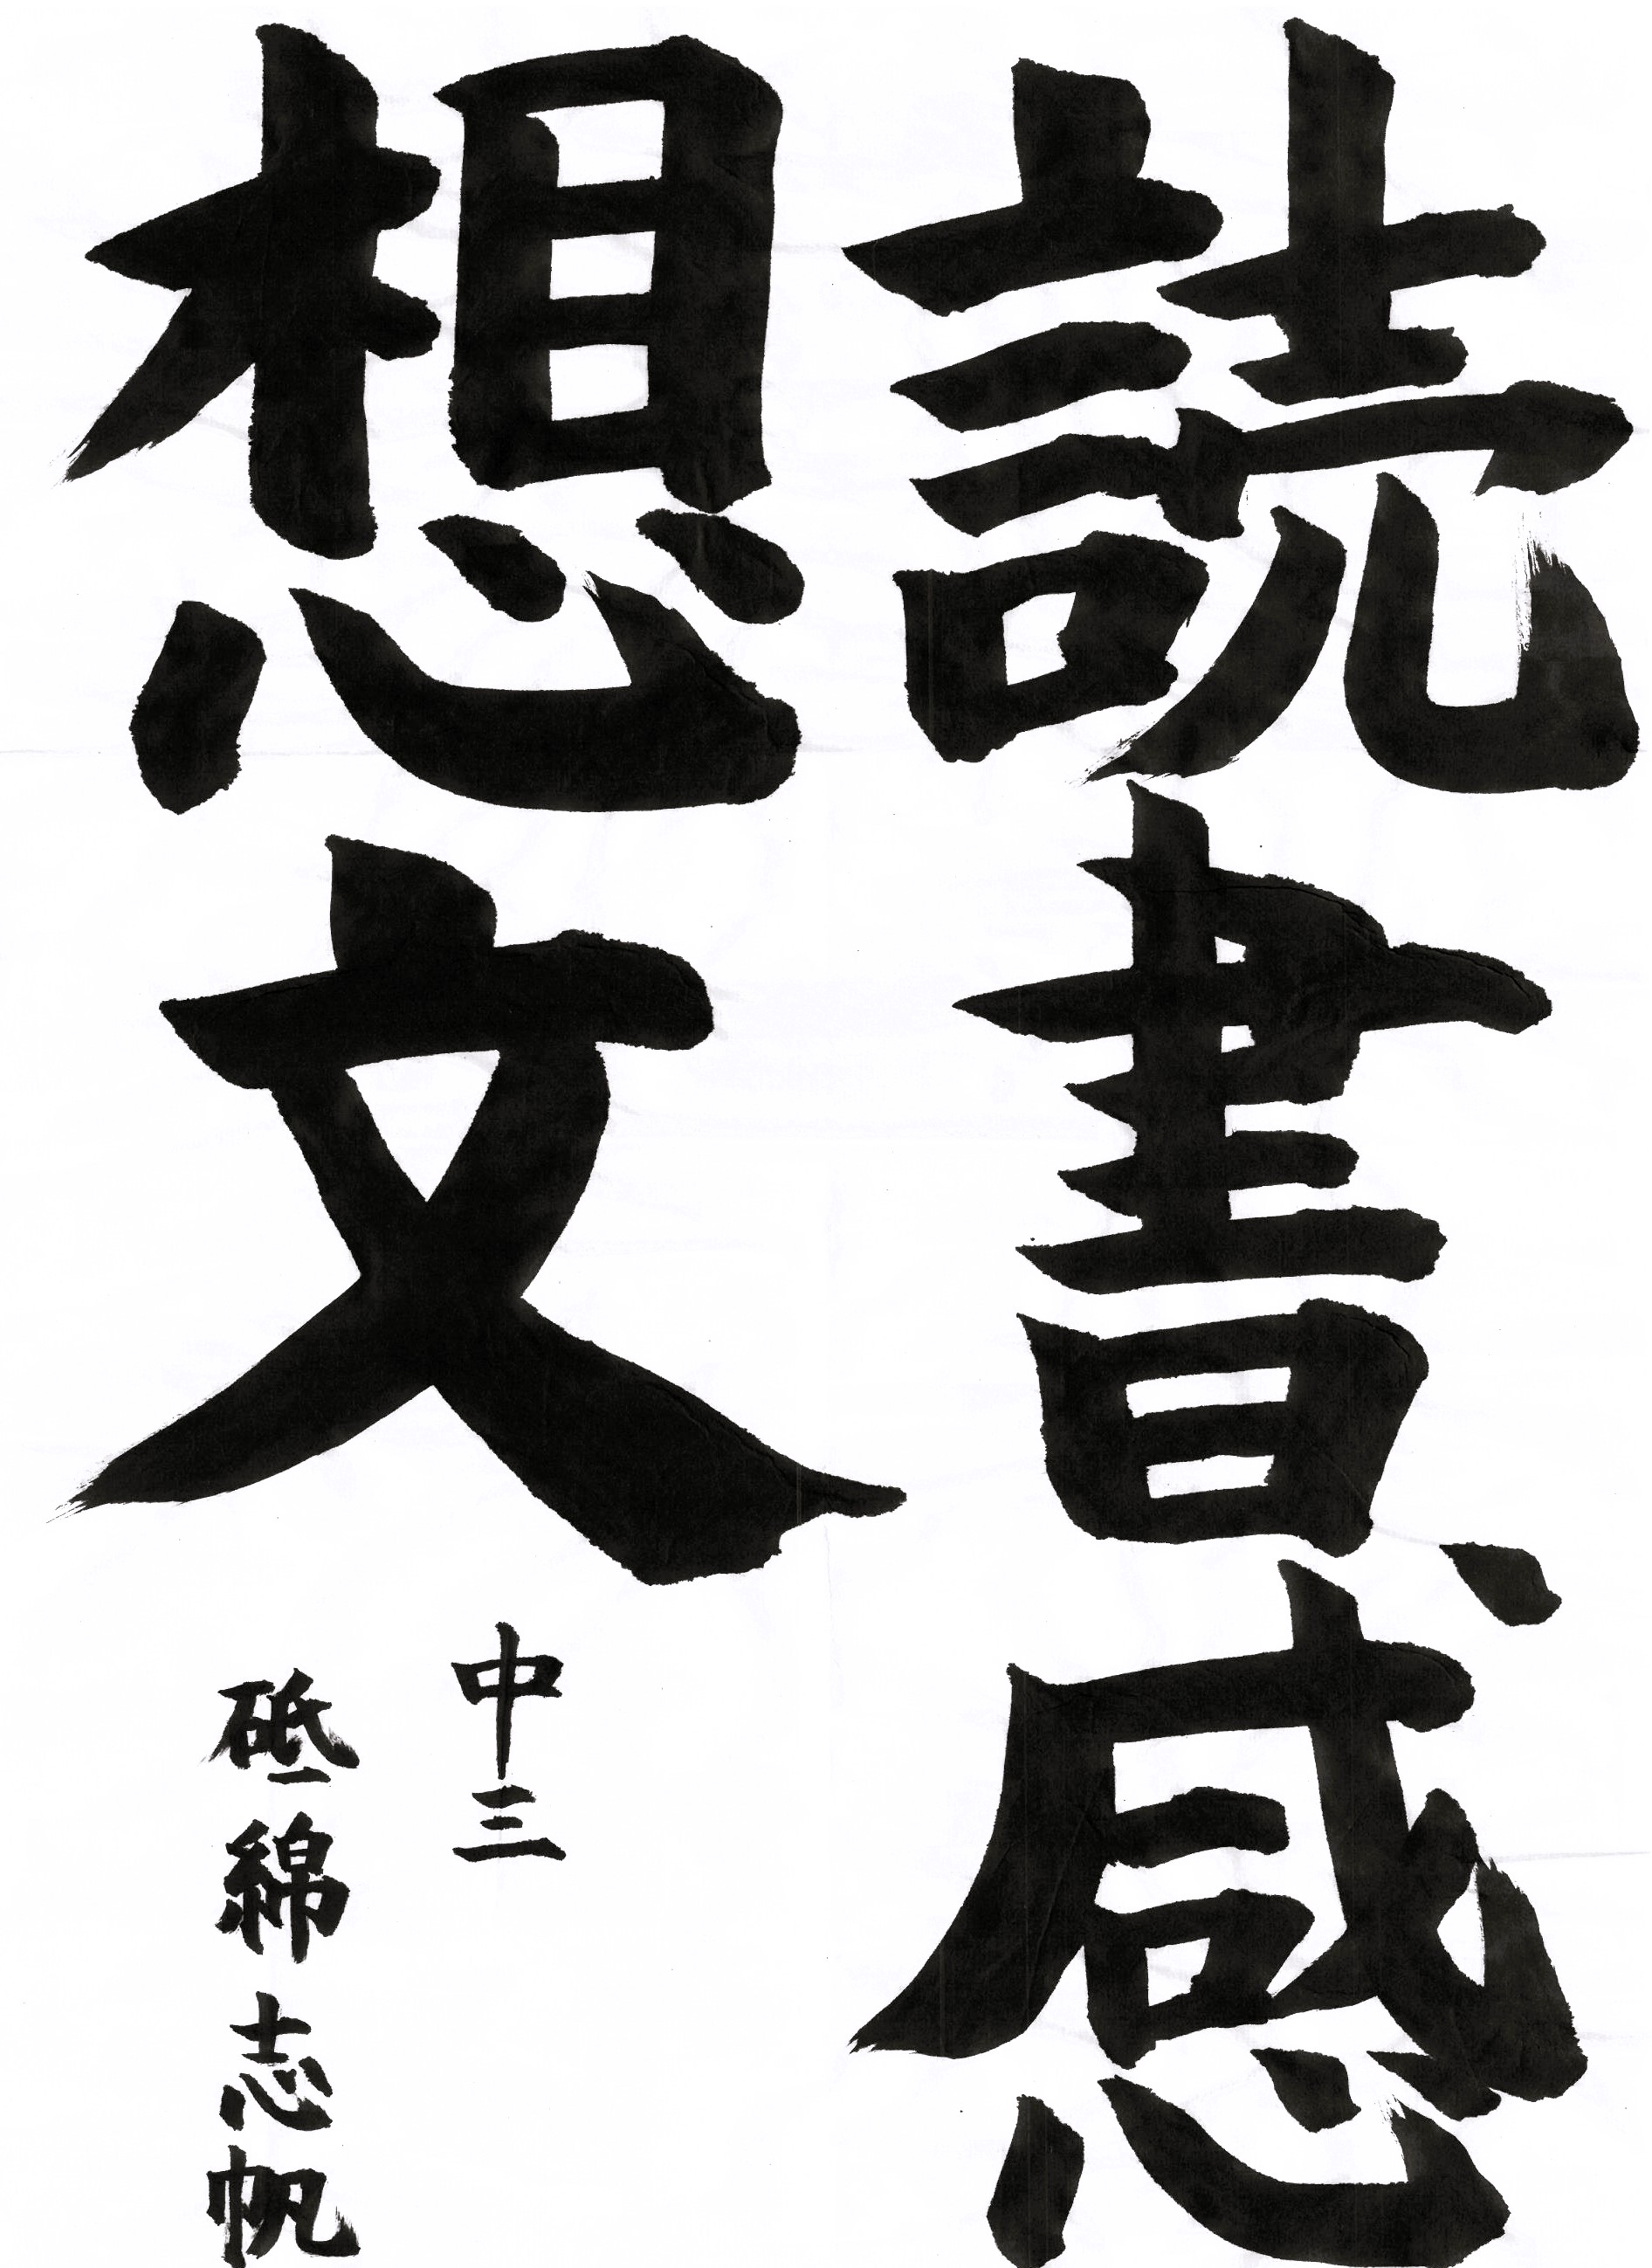 読書、感
想文
中三
砥綿志帆